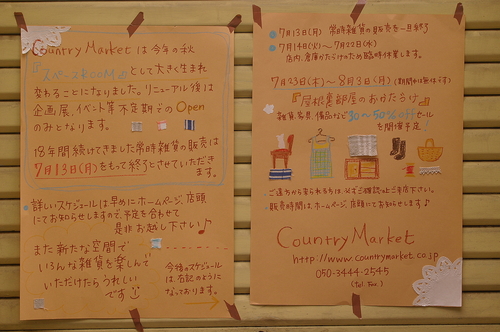 Country Market は今年の秋
『スペースROOM』として大きく生まれ
変わることになりました。リニューアル後は
企画展、イベント等不定期での Open
のみとなります。
18年間続けてきました常時雑貨の販売は
7月13日(月)をもって終了とさせていただき
ます。
詳しいスケジュールは早めにホームページ、店頭
にてお知らせしますので、予定を合わせて
是非お越し下さい♪
また新たな空間で
いろんな雑貨を楽しんで
いただけたらうれしい
です
今後のスケジュール
は、右記のように
なっております。
7月13日(月) 常時雑貨の販売を一旦終了
7月14日(火)〜7月22日(水)
店内、倉庫かたづけのため臨時休業します。
7月23日(木)〜8月3日(月)(期間中は無休です)
『屋根裏部屋のおかたづけ』
雑貨、家具、備品など30〜90%offセール
を開催予定!
ご遠方から来られる方は、必ずご確認の上ご来店下さい。
販売時間は、ホームページ、店頭にてお知らせします♪
Country Market
http://www.countrymarket.co.jp
050-3444-2545
(tel. fax.)